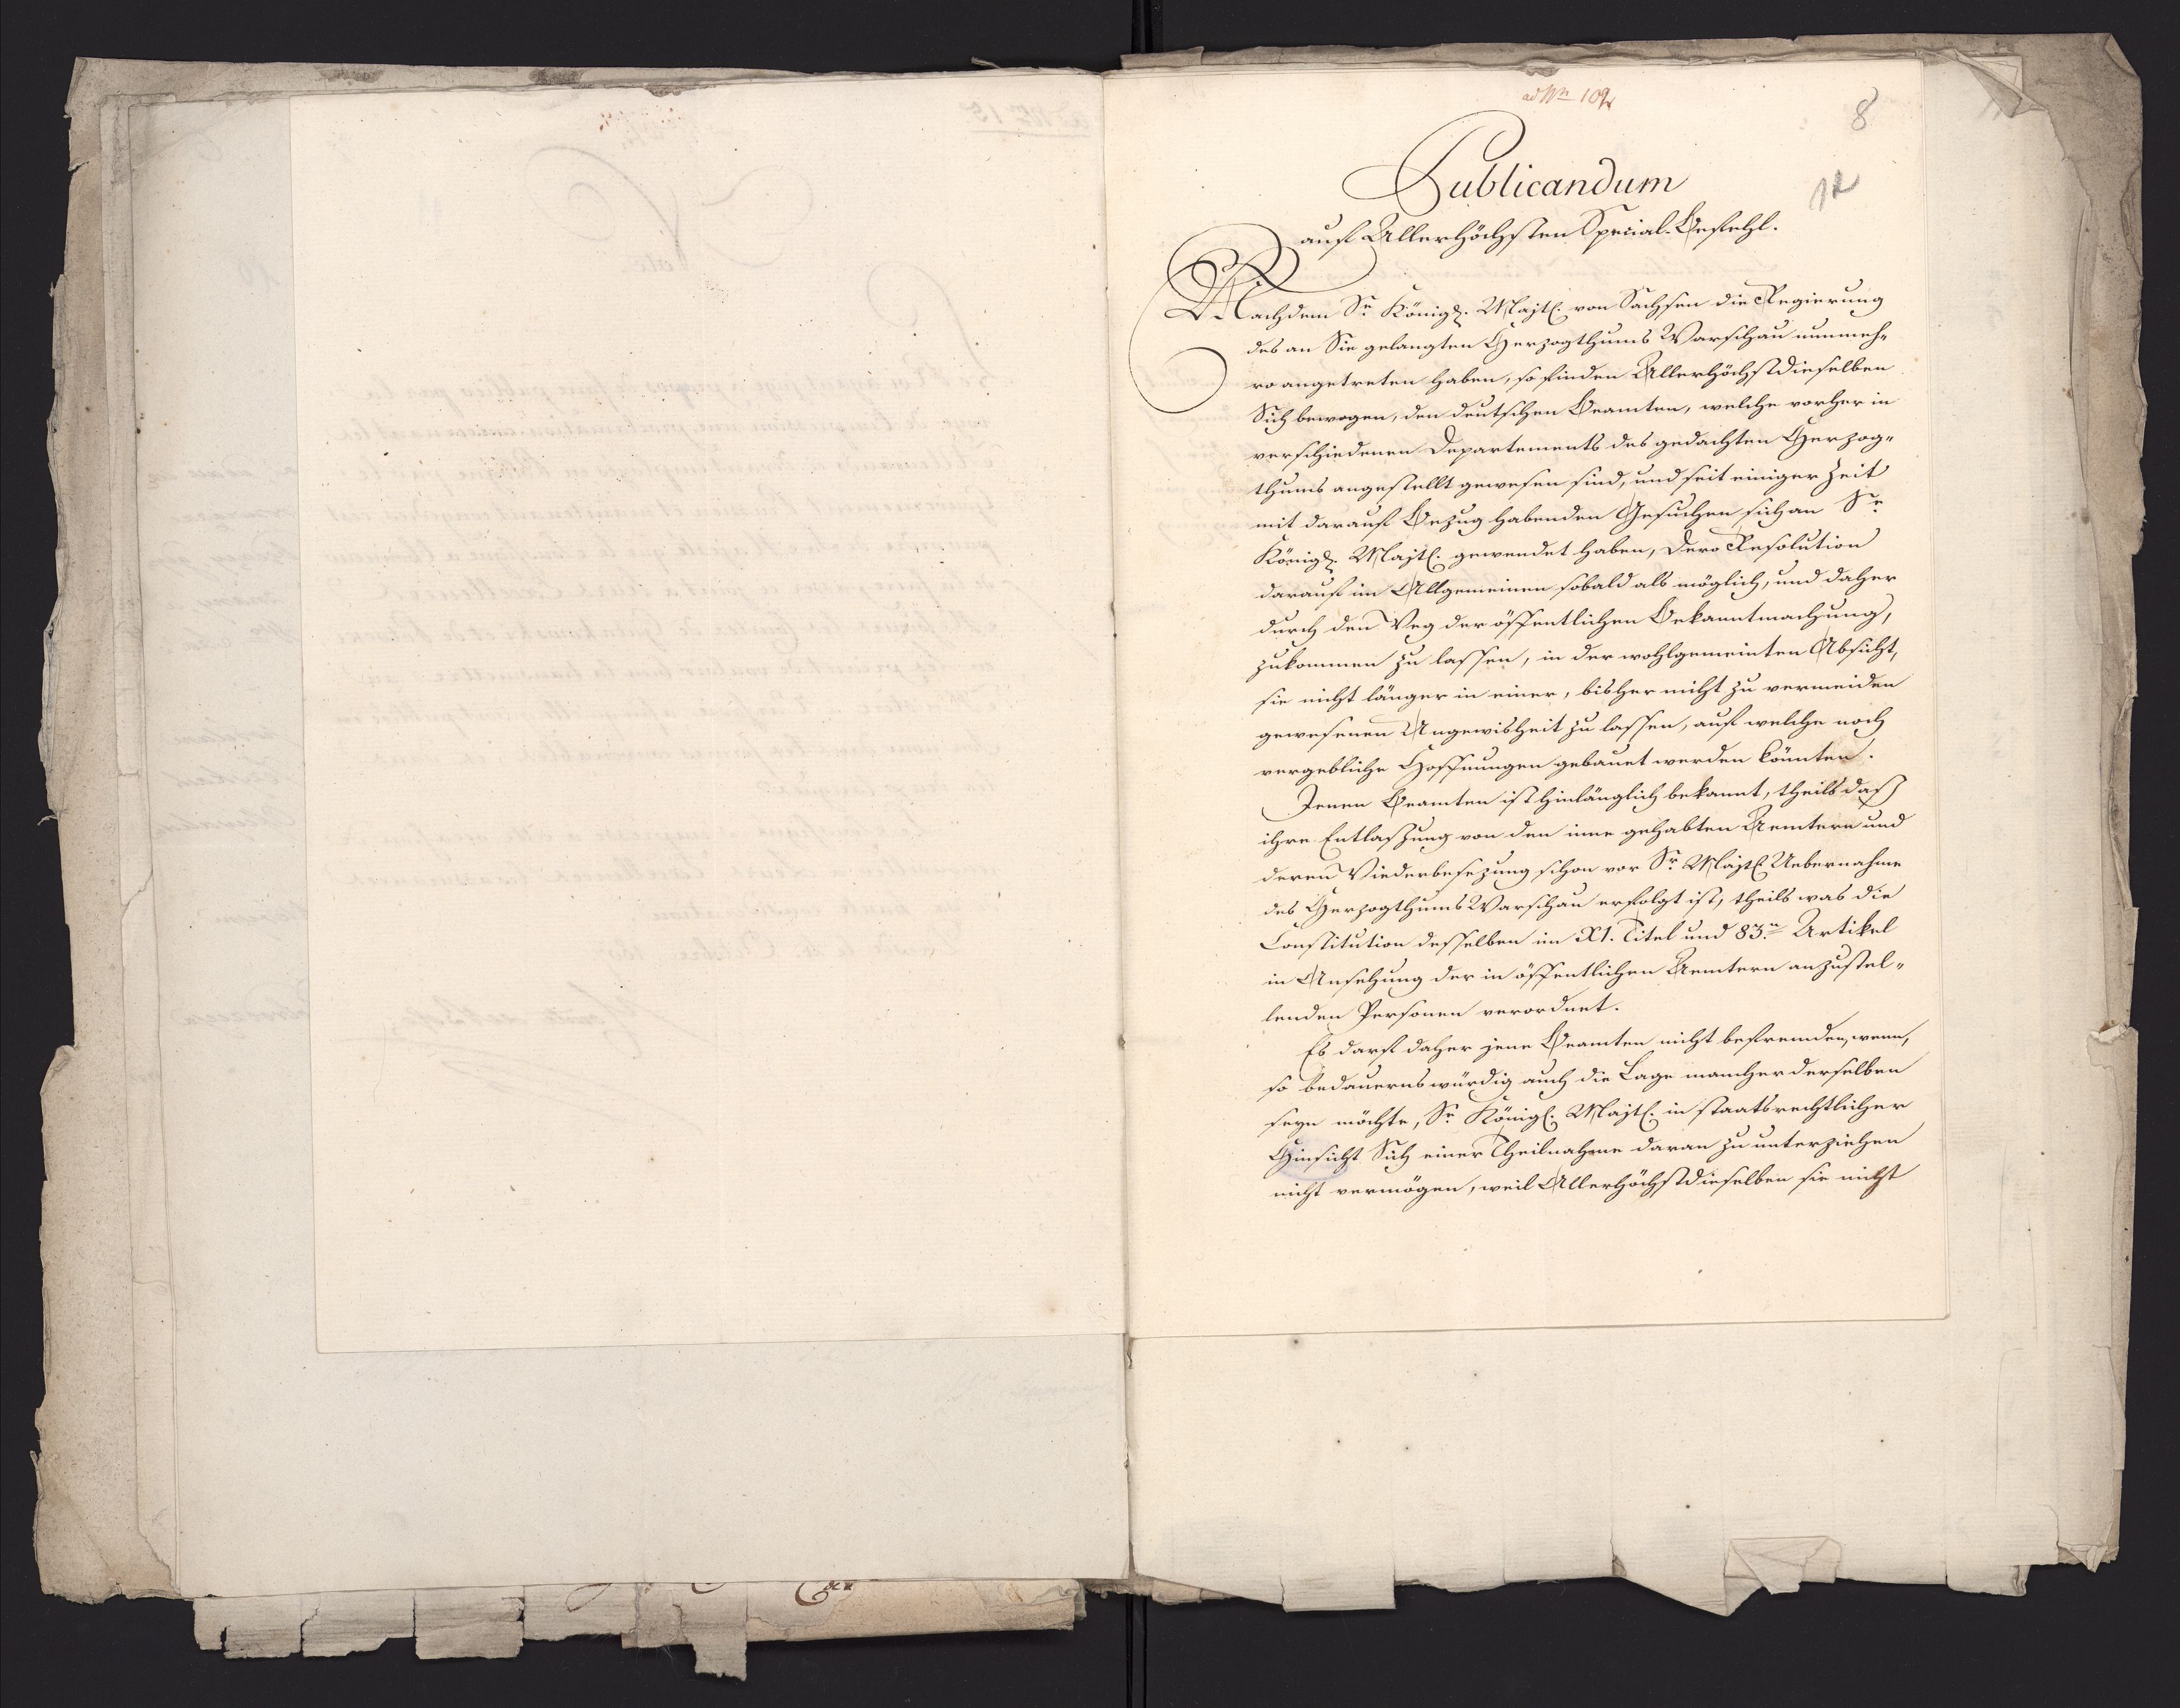 ad No 109
8
12
Publicandum
auf Allerhöchsten Special-Befehl.
Nachdem Sr. Königl. Majtt. von Sachsen die Regierung
des an Sie gelangten Herzogthums Warschau nunmeh-
ro angetreten haben, so finden Allerhöchstdieselben
Sich bewogen, den deutschen Beamten, welche vorher in
verschiedenen Departements des gedachten Herzog-
thums angestellt gewesen sind, und seit einiger Zeit
mit darauf Bezug habenden Gesuchen sich an Sr.
Königl. Majtt. gewendet haben, Dero Resolution
darauf im Allgemeinen sobald als möglich, und daher
durch den Weg der öffentlichen Bekanntmachung,
zukommen zu lassen, in der wohlgemeinten Absicht,
sie nicht länger in einer, bisher nicht zu vermeiden
gewesenen Ungewisheit zu lassen, auf welche noch
vergebliche Hoffnungen gebauet werden könnten.
Jenen Beamten ist hinlänglich bekannt, theils daß
ihre Entlaßung von den inne gehabten Aemtern und
deren Wiederbesezung schon vor Sr. Majtt. Uebernahme
des Herzogthums Warschau erfolgt ist, theils was die
Constitution desselben im XI. Titel und 83.n Artikel
in Ansehung der in öffentlichen Aemtern anzustel-
lenden Personen verordnet.
Es darf daher jene Beamten nicht befremden, wenn,
so bedauernswürdig auch die Lage mancher derselben
seyn möchte, Sr. Königl. Majtt. in staatsrechtlicher
Hinsicht Sich einer Theilnahme daran zu unterziehen
nicht vermögen, weil Allerhöchstdieselben sie nicht